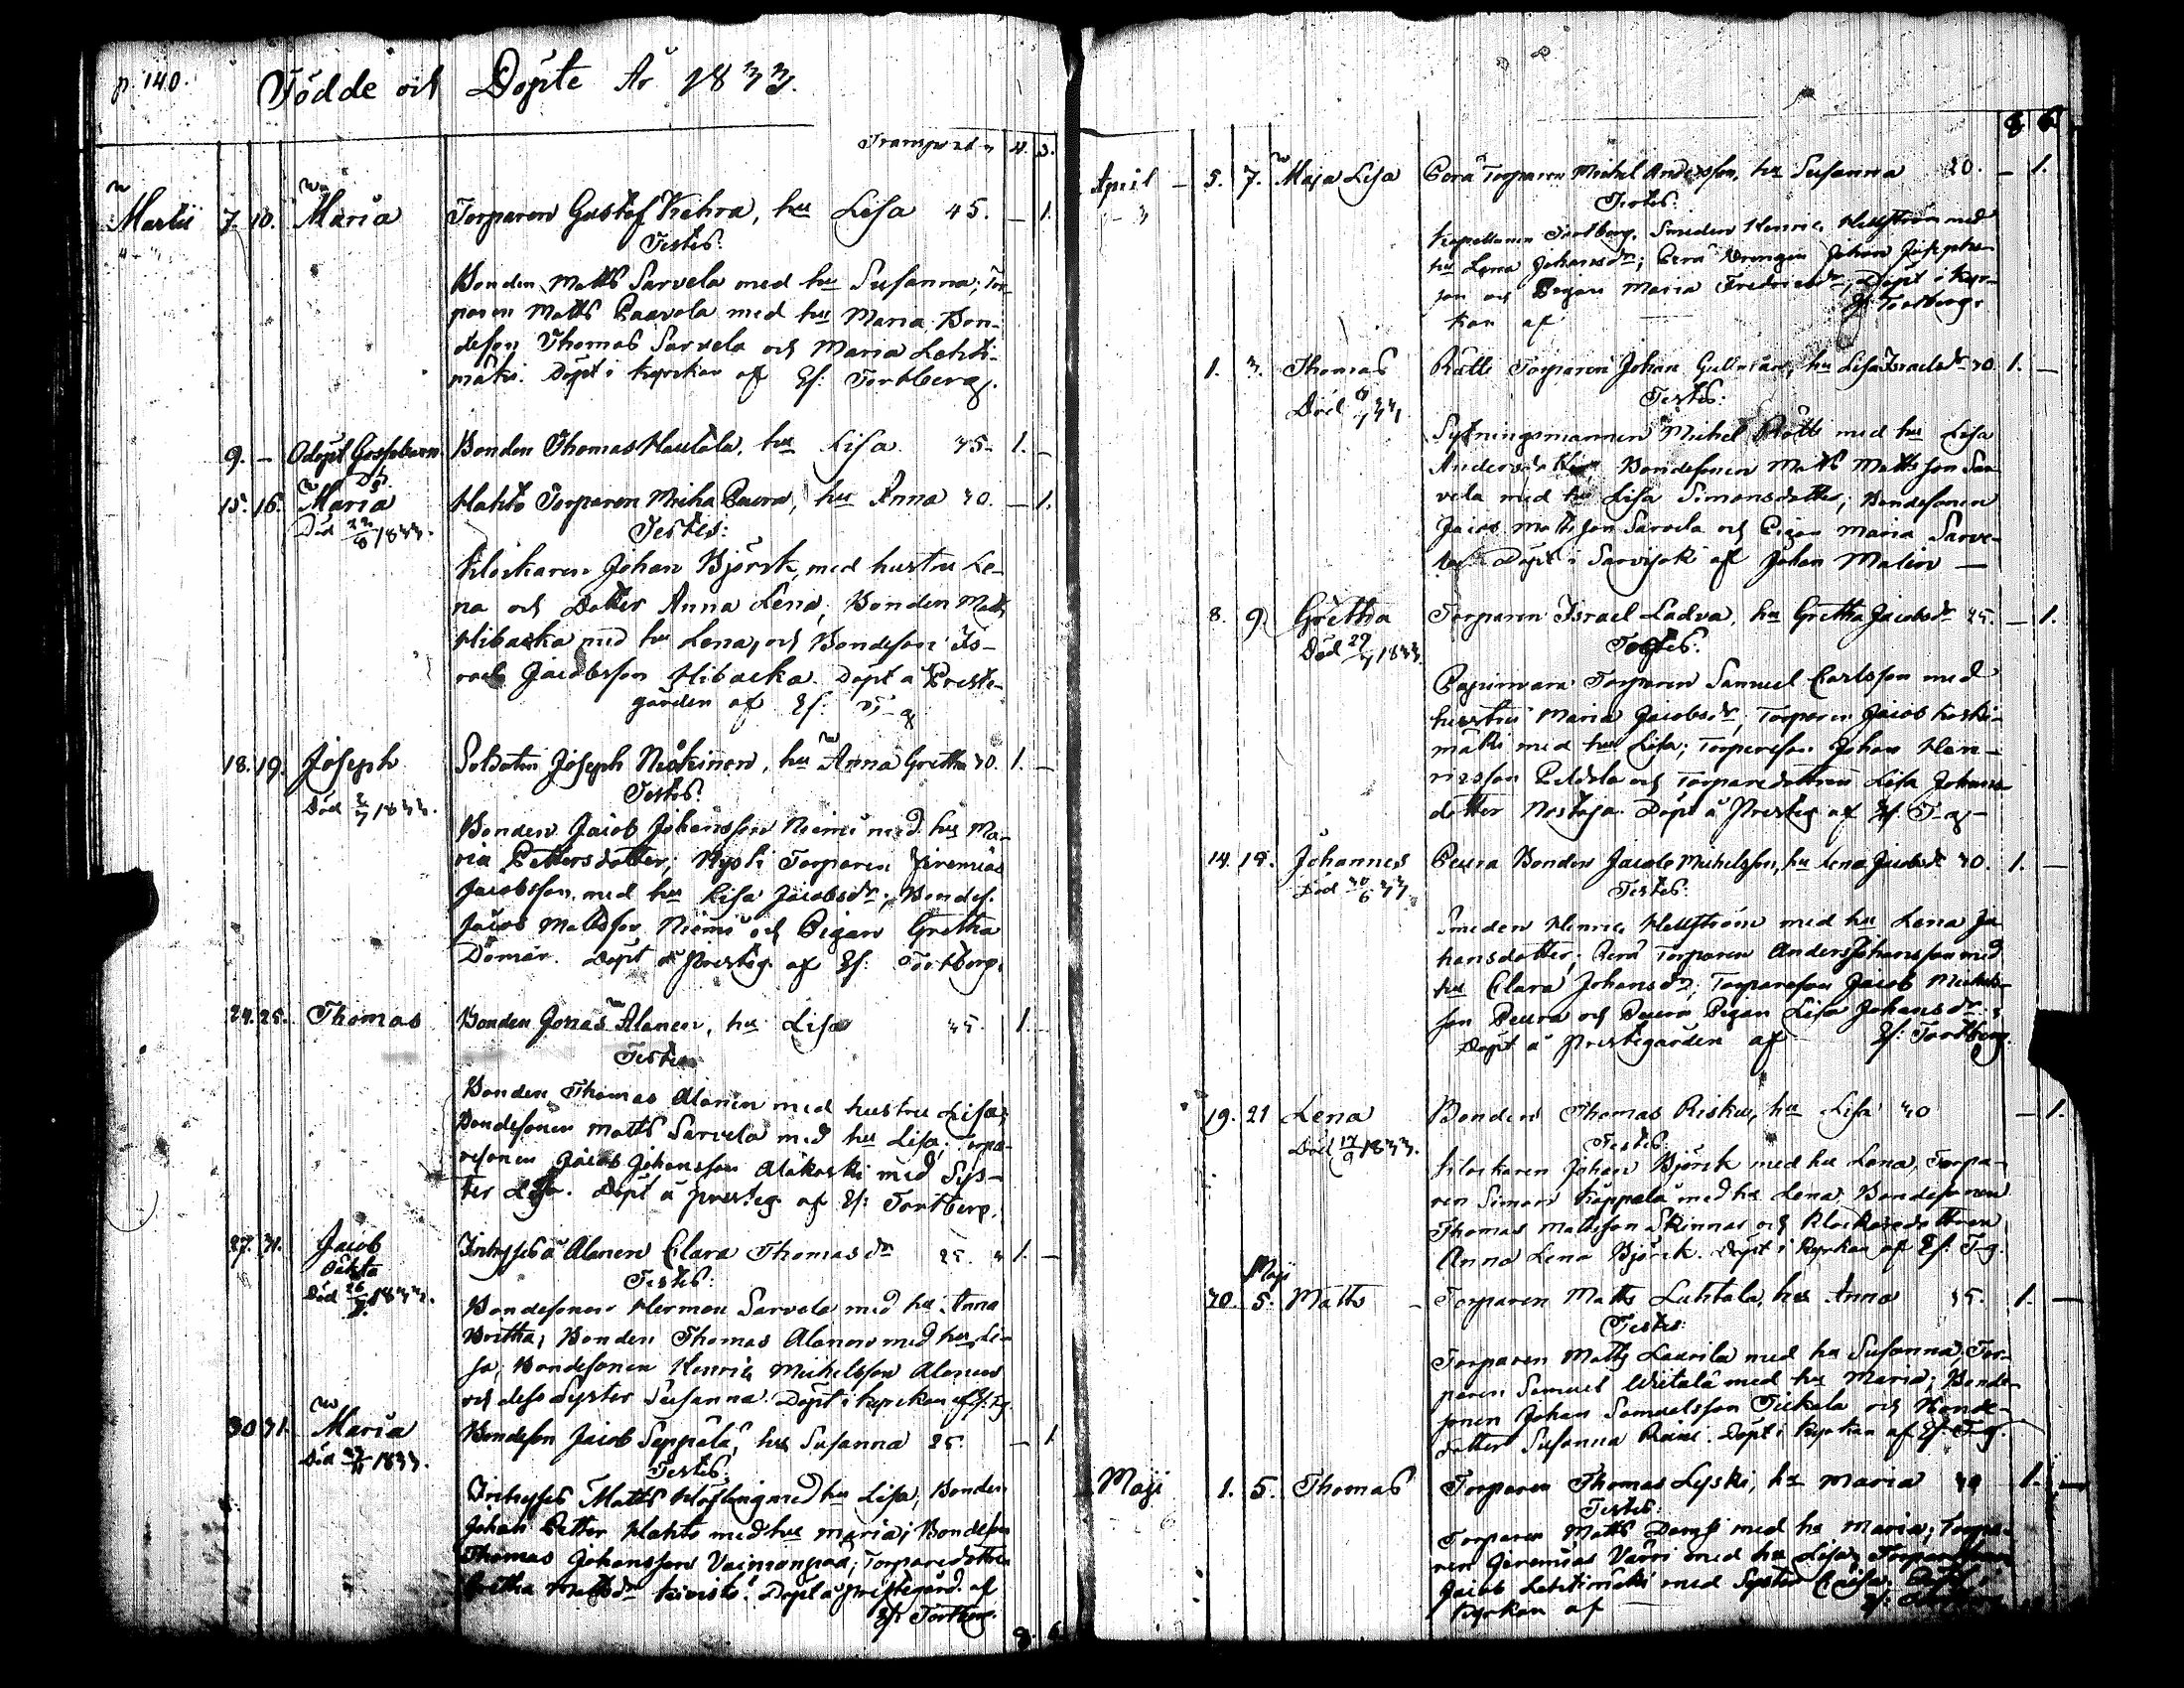 p. 140.
Födde och Döpte År 1833.
Transport 4. 3.
Martii 7. 10. Maria Torparen Gustaf Kehra, hu Lisa 45. — 1.
Testes:
Bonden Matts Sarvela med hu Susanna; Tor-
paren Matts Paavola med hu Maria; Bon-
desson Thomas Sarvela och Maria Lahti-
mäki. Döpt i kyrkan af Ef: Tortberg.
9. — Odöpt Gossebarn Bonden Thomas Hautala, hu Lisa 35. 1. —
15. 16. Maria Hahto Torparen Micha Paura, hu Anna 30. — 1.
Död 22/8 1833. Testes:
Klockaren Johan Björck, med hustru Le-
na och Dotter Anna Lena; Bonden Matts
Hibacka med hu Lena, och Bondeson Is-
rael Jacobsson Hibacka. Döpt å Preste-
gården af Ef: T-g
18. 19. Joseph Soldaten Joseph Niskinen, hu Anna Gretha 30. 1. —
Död 2/7 1833. Testes:
Bonden Jacob Johansson Niemi med hu Ma-
ria Pettersdotter; Torparen Jeremias
Jacobsson med hu Lisa Jacobsdr; Bondes.
Jacob Mattsson Niemi och Pigan Gretha
Dömär. Döpt å Presteg. af Ef: Tortberg.
24. 25. Thomas Bonden Jonas Alanen, hu Lisa 35. 1. —
Testes
Bonden Thomas Alanen med hustru Lisa;
Bondesonen Matts Sarvela med hu Lisa; Torpa-
resonen Jacob Johansson Alakoski med Sys-
ter Lisa. Döpt å presteg. af Ef: Tortberg.
27. 31. Jacob Inhyses å Alanen Clara Thomasdr 25. 1. —
Oäkta
Död 26/ 1833. Testes:
Bondesonen Herman Sarvela med hu Anna
Britha; Bonden Thomas Alanen med hu Li-
sa; Bondesonen Henric Michelsson Alanen
och dess Syster Susanna. Döpt i kyrkan af Ef: T-g.
30. 31. Maria Bondeson Jacob Seppälä, hu Susanna 25. — 1.
Död 1833. Testes:
Inhyses Matts Höfling med hu Lisa; Bonden
Johan Petter Hahto med hu Maria; Bondeson
Thomas Johansson Vainionpaa; Torparedotter
Gretha Mattsdr Kivistö. Döpt å Prestegård. af
Ef: Tortberg.
8. 6.
8 6
April 5. 7. Maja Lisa Perä Torparen Michel Andersson, hu Susanna 20. — 1.
Testes:
Kapellanen Tortberg, Smeden Henric Hellström med
hu Lena Johansdr; Perä Drengen Johan
son och Pigan Maria Fredricsdr. Döpt i kyr-
kan af Ef: Tortberg.
1. 3. Thomas Rätti Torparen Johan Gullman, hu Lisa Israelsdr 30. 1. —
Död Testes:
Sytningsmannen Michel Rätti med hu Lisa
Andersdotter; Bondesonen Matts Mattsson Sar-
vela med hu Lisa Simonsdotter; Bondesonen
Jacob Mattsson Sarvela och Pigan Maria Sarve-
la. Döpt i Sarvijoki af Johan Malin —
8. 9. Gretha Torparen Israel Ladva, hu Gretha Jacobsdr 25. — 1.
Död 29/7 1833. Testes:
Torparen Samuel Carlsson med
hustru Maria Jacobsdr; Torparen Jacob Koski-
mäki med hu Lisa; Torpareson Johan Hen-
ricsson Peldola och Torparedottren Lisa Johans-
dotter Nostaja. Döpt å Presteg. af Ef. T-g —
14. 15. Johannes Peura Bonden Jacob Michelsson, hu Lena Jacobsdr 30. 1. —
Död 30/6 33. Testes:
Smeden Henric Hellström med hu Lena Jo-
hansdotter; Perä Torparen Anders Johansson med
hu Clara Johansdr; Torpareson Jacob Michels-
son Peura och Peura Pigan Lisa Johansdr.
Döpt å Prestegården af Ef: Tortberg.
19. 21 Lena Bonden Thomas Risku, hu Lisa 30 — 1.
Död 17/9 1833. Testes:
Klockaren Johan Björck med hu Lena, Torpa-
ren Simon Käppälä med hu Lena; Bondesonen
Thomas Mattsson Skinnar och Klockaredottren
Anna Lena Björck. Döpt i kyrkan af Ef: T-g.
Maji
30. 5. Matts Torparen Matts Luhtala, hu Anna 35. 1. —
Testes:
Torparen Matts Laurila med hu Susanna; Tor-
paren Samuel med hu Maria; Bonde-
sonen Johan Samuelsson Tiekala och Bonde-
dotter Susanna. Döpt i kyrkan af Ef: T-g.
Maji 1. 5. Thomas Torparen Thomas Lyski, hu Maria 1. —
Testes:
Torparen Matts med hu Maria; Torpa-
ren Jeremias Värri med hu Lisa;
Jacob Lahtimäki med Syster Lisa. Döpt i
kyrkan af